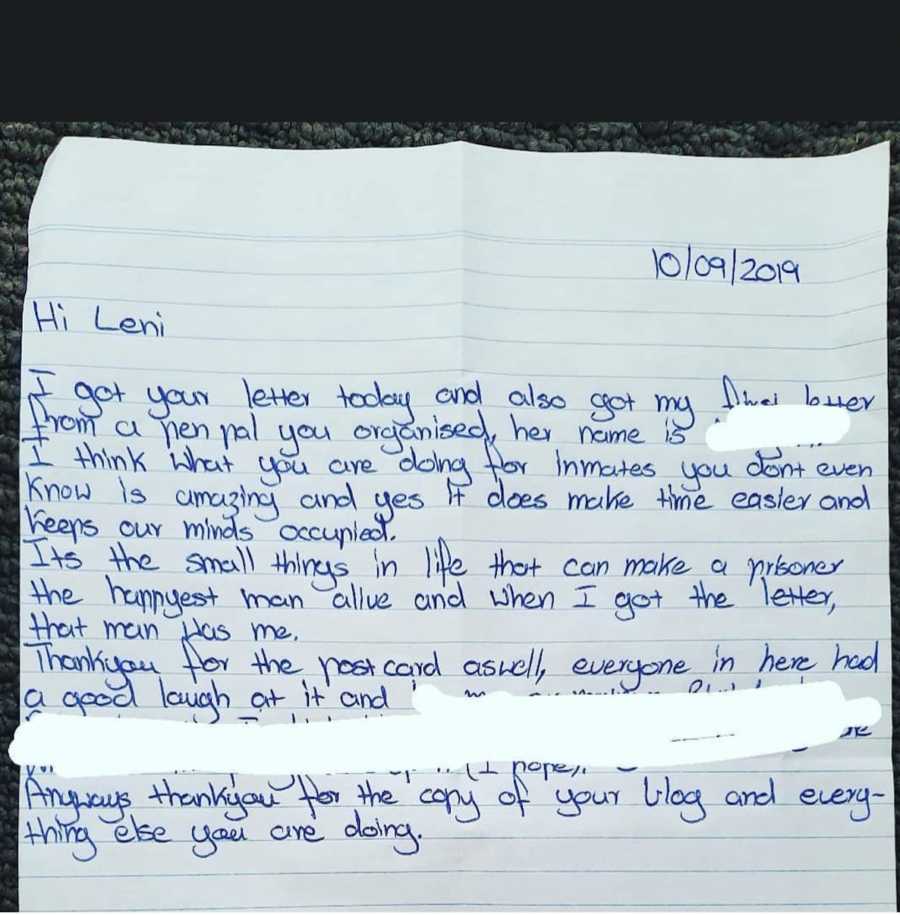 10/09/2019
Hi Leni
I got your letter today and also got my first letter
from a pen pal you organised, her name is
I think what you are doing for inmates you dont even
know is amazing and yes it does make time easier and
keeps our minds occupied.
Its the small things in life that can make a prisoner
the happyest man alive and when I got the letter,
that man was me.
Thankyou for the postcard aswell, everyone in here had
a good laugh at it and
(I hope).
Anyways thankyou for the copy of your blog and every-
thing else you are doing.